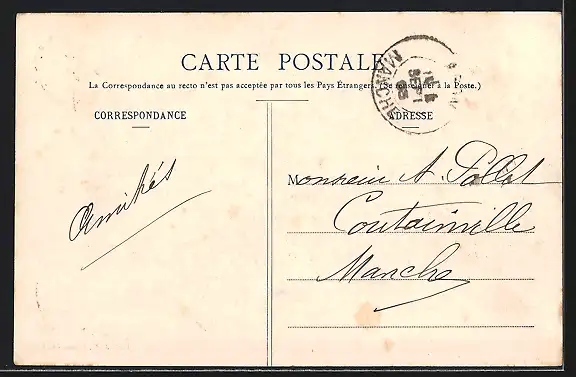 CARTE POSTALE
La Correspondance au recto n'est pas acceptée par tous les Pays Étrangers. (Se renseigner à la Poste.)
CORRESPONDANCE
ADRESSE
MANCHE
Amitiés
Monsieur A. Pallot
Coutainville
Manche